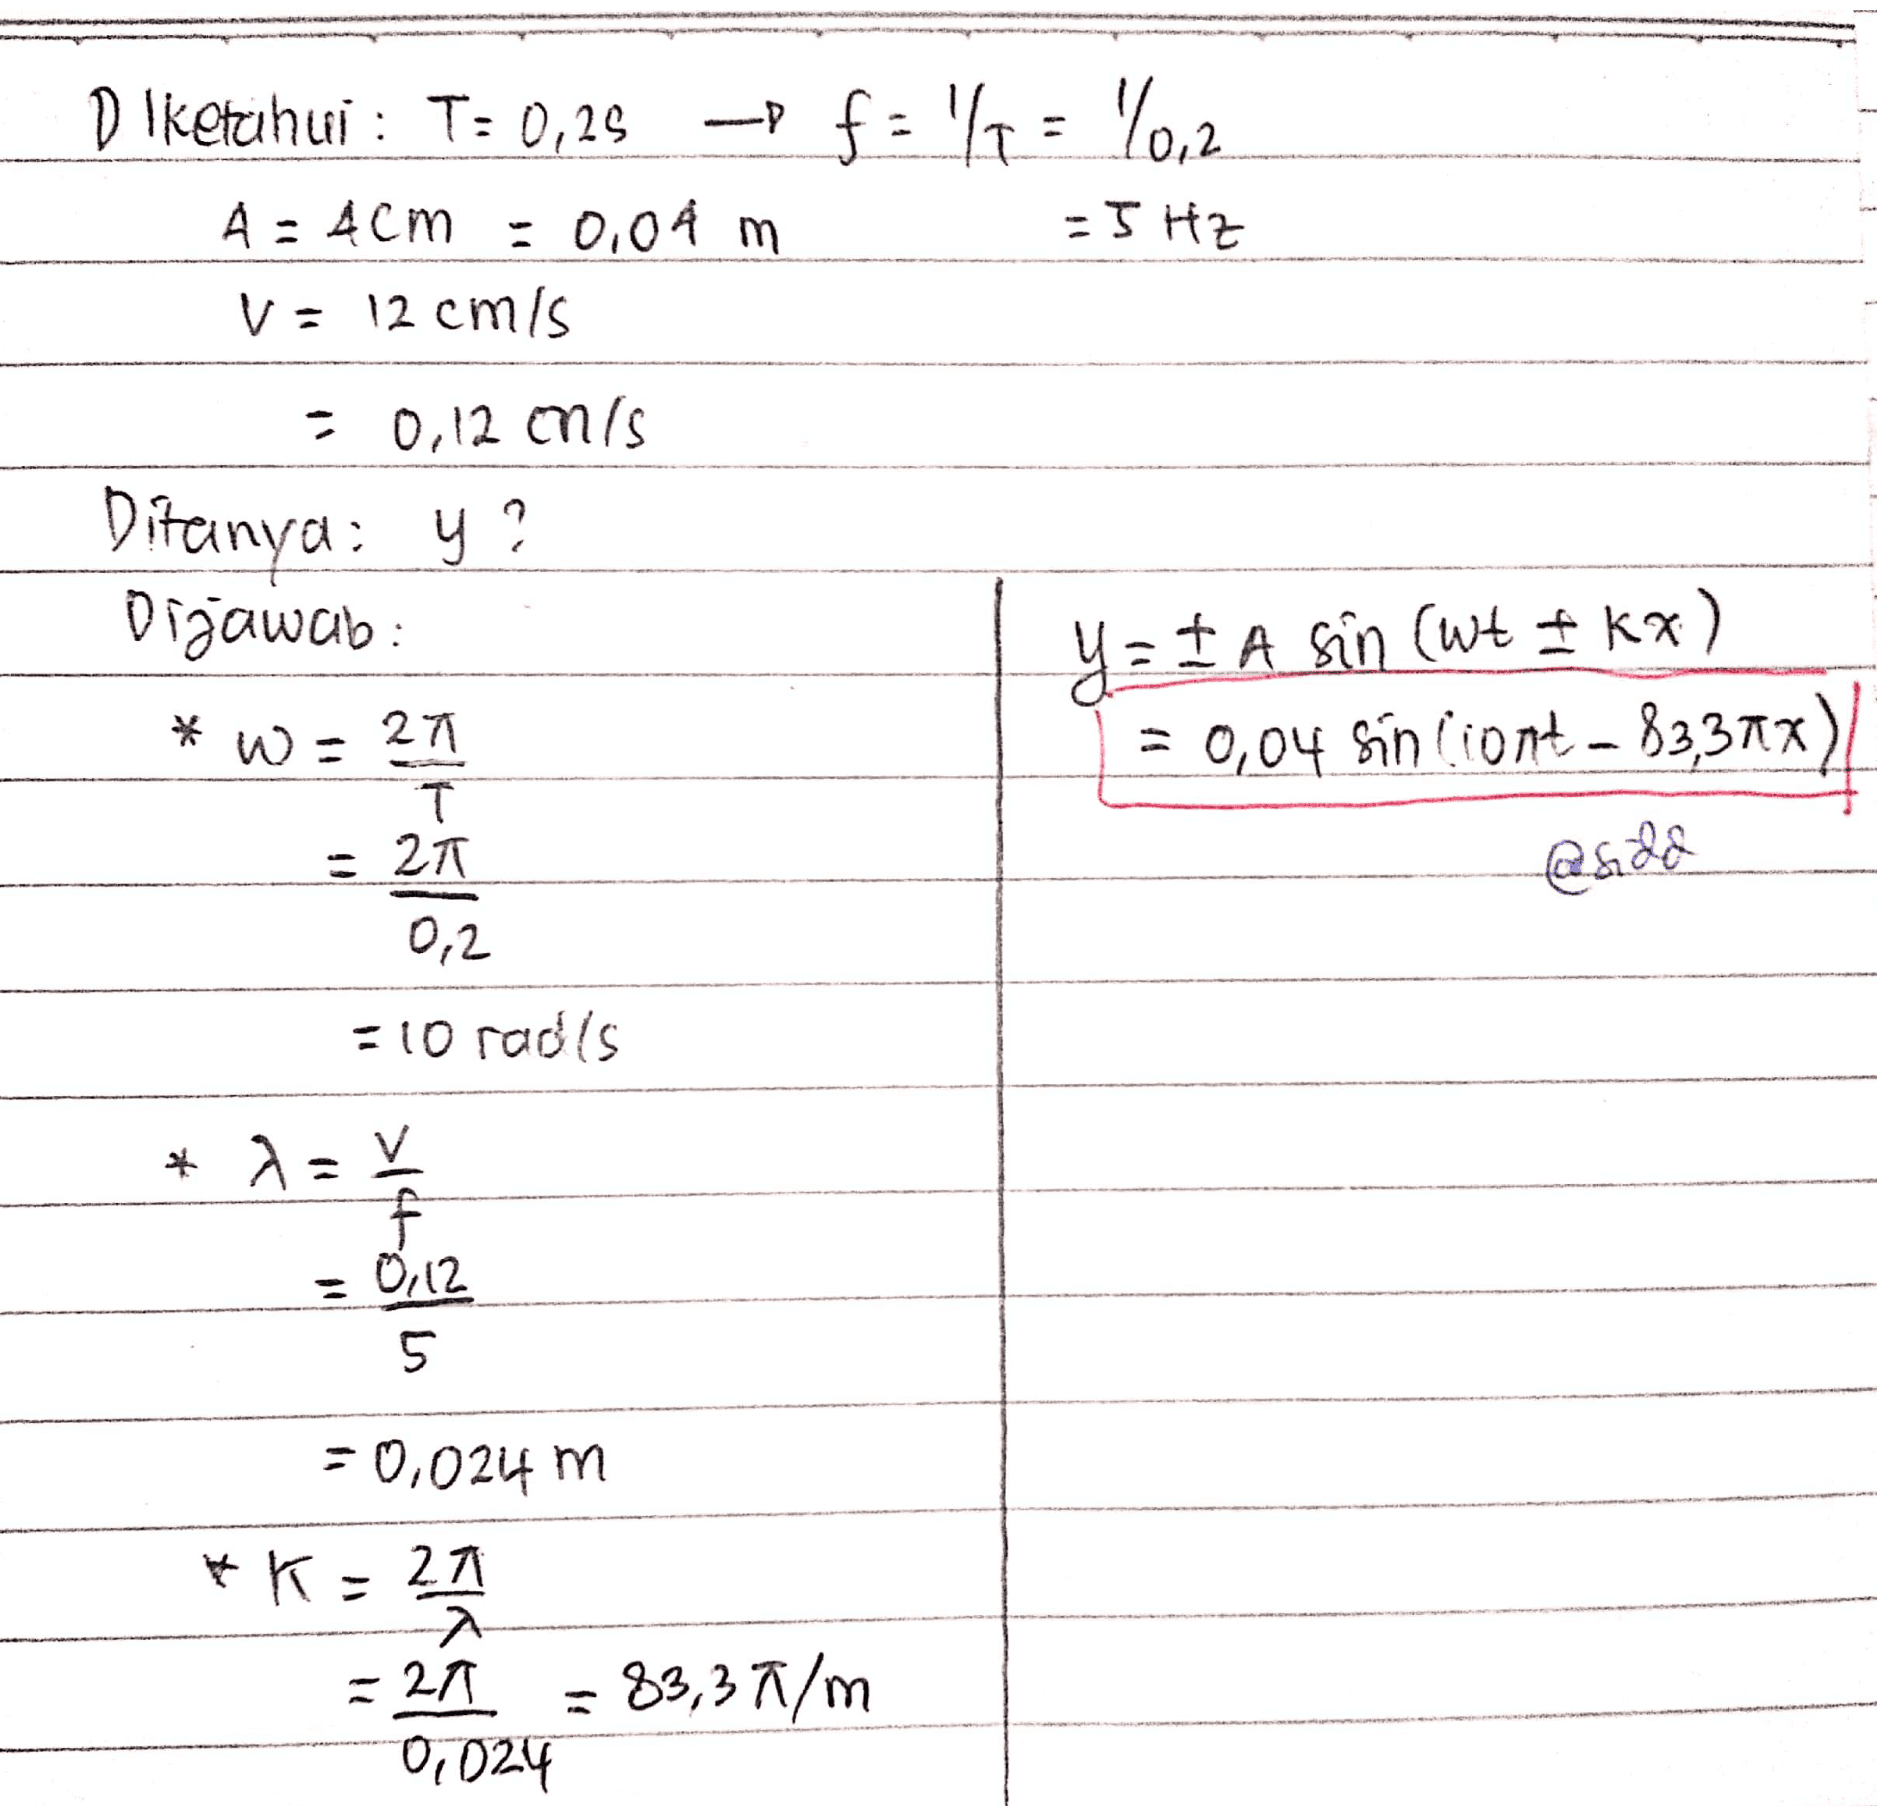 Diketahui : T = 0,2s → f = 1/T = 1/0,2
A = 4 cm = 0,04 m = 5 Hz
V = 12 cm/s
= 0,12 cm/s
Ditanya : y ?
Dijawab :
* ω = 2π/T
= 2π/0,2
= 10 rad/s
* λ = v/f
= 0,12/5
= 0,024 m
* K = 2π/λ
= 2π/0,024 = 83,3 π/m
y = ± A sin (ωt ± Kx)
= 0,04 sin (10πt – 83,3πx)